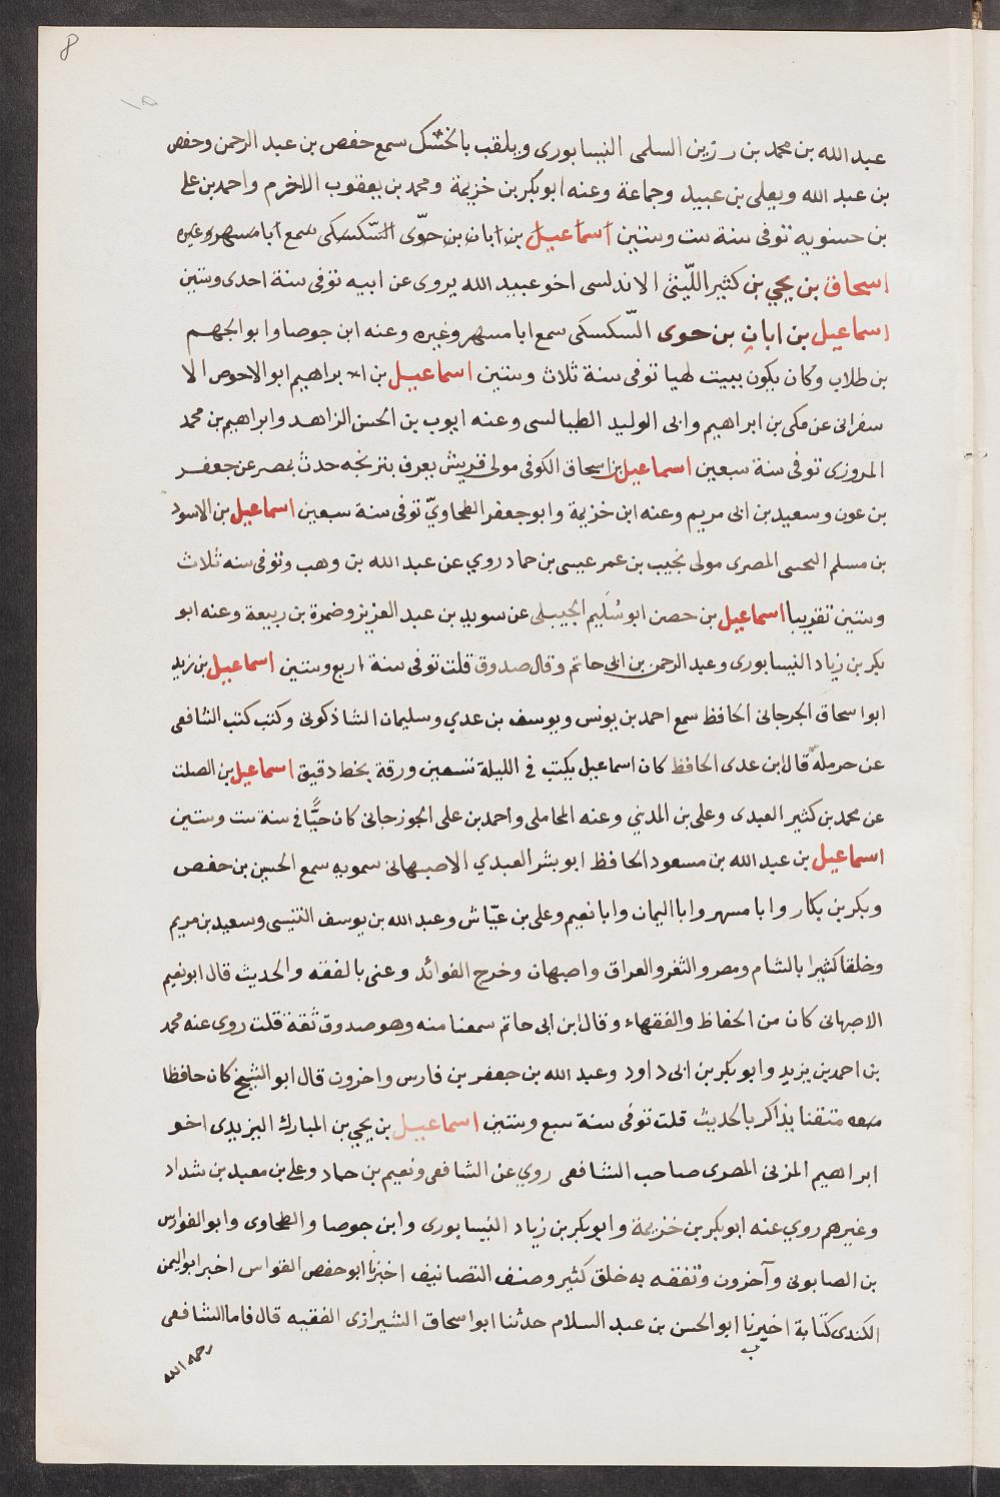 8
١٥
عبد الله بن محمد بن رزين السلمى النيسابورى ويلقب بالخشك سمع حفص بن عبد الرحمن وحفص
بن عبد الله ويعلى بن عبيد وجماعة وعنه ابو بكر بن خزيمة ومحمد بن يعقوب الاخرم واحمد بن على
بن حسنويه توفى سنة ست وستين اسماعيل بن ابان بن حوّى السّكسكى سمع ابا مسهر وغيره
اسحاق بن يحيى بن كثير اللّيثى الاندلسى اخو عبيد الله يروى عن ابيه توفى سنة احدى وستين
اسماعيل بن ابان بن حوى السّكسكى سمع ابا مسهر وغيره وعنه ابن جوصا وابو الجهم
بن طلاب وكان يكون ببيت لهيا توفى سنة ثلاث وستين اسماعيل بن ابراهيم ابو الاحوص الا
سفرانى عن مكى بن ابراهيم وابى الوليد الطيالسى وعنه ايوب بن الحسن الزاهد وابراهيم بن محمد
المروزى توفى سنة سبعين اسماعيل بن اسحاق الكوفى مولى قريش يعرف بترنجه حدث بمصر عن جعفر
بن عون وسعيد بن ابى مريم وعنه ابن خزيمة وابو جعفر الطحاويّ توفى سنة سبعين اسماعيل بن الاسود
بن مسلم المصرى مولى نجيب بن عمر عيسى بن حماد روي عن عبد الله بن وهب وتوفى سنه ثلاث
وستين تقريبا اسماعيل بن حصن ابو سُلَيم الجبيلى عن سويد بن عبد العزيز وضمرة بن ربيعة وعنه ابو
بكر بن زياد النيسابورى وعبد الرحمن بن ابى حاتم وقال صدوق قلت توفى سنة اربع وستين اسماعيل بن زيد
ابو اسحاق الجرجانى الحافظ سمع احمد بن يونس ويوسف بن عدي وسليمان الشاذكونى وكتب كتب الشافعى
عن حرملة قال ابن عدى الحافظ كان اسماعيل يكتب فى الليلة تسعين ورقة بخط دقيق اسماعيل بن الصلت
عن محمد بن كثير العبدى وعلى بن المدني وعنه المحاملى وأحمد بن على الجوزجانى كان حيًّا فى سنة ست وستين
اسماعيل بن عبد الله بن مسعود الحافظ ابو بشر العبدي الاصبهانى سمويه سمع الحسين بن حفص
وبكر بن بكار وابا مسهر وابا اليمان وابا نعيم وعلى بن عيّاش وعبد الله بن يوسف التنيسى وسعيد بن مريم
وخلقا كثيرا بالشام ومصر والثغر والعراق واصبهان وخرج الفوائد وعنى بالفقه والحديث قال ابو نعيم
الاصبهانى كان من الحفاظ والفقهاء وقال ابن ابى حاتم سمعنا منه وهو صدوق ثقة قلت روى عنه محمد
بن احمد بن يزيد وابو بكر بن ابى داود وعبد الله بن جعفر بن فارس واخرون قال ابو الشيخ كان حافظا
متقنا يذاكر بالحديث قلت توفى سنة سبع وستين اسماعيل بن يحيى بن المبارك اليزيدى اخو
ابراهيم المزنى المصرى صاحب الشافعى روي عن الشافعى ونعيم بن حماد وعلى بن معبد بن شداد
وغيرهم روي عنه ابو بكر بن خزيمة وابو بكر بن زياد النيسابورى وابن جوصا والطحاوى وابو الفوارس
بن الصابونى وآخرون وتفقه به خلق كثير وصنف التصانيف اخبرنا ابو حفص القواس اخبر ابو اليمن
الكندى كتابة اخبرنا ابو الحسن بن عبد السلام حدثنا ابو اسحاق الشيرازى الفقيه قال فاما الشافعى
رحمه الله